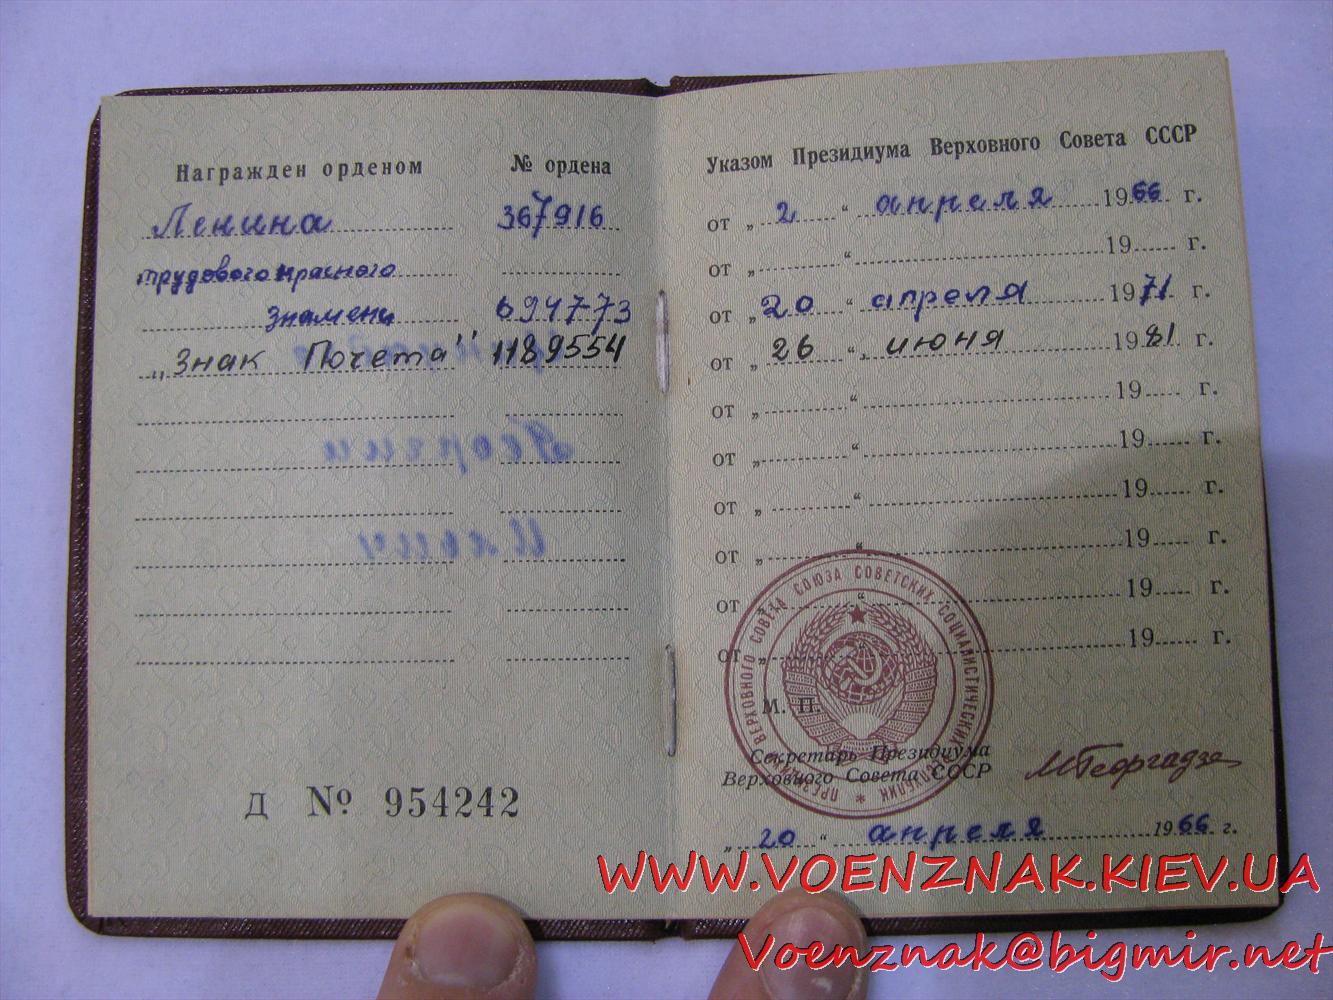 Награжден орденом
№ ордена
Ленина
367916
трудового красного
знамени
694773
„Знак Почета"
1189554
Георгий
Ильич
Д № 954242
Указом Президиума Верховного Совета СССР
от „2“ апреля 1966 г.
от „ “ 19 г.
от „20“ апреля 1971 г.
от „26“ июня 1981 г.
от „ “ 19 г.
от „ “ 19 г.
от „ “ 19 г.
от „ “ 19 г.
от „ “ 19 г.
от „ “ 19 г.
ПРЕЗИДИУМ ВЕРХОВНОГО СОВЕТА СОЮЗА СОВЕТСКИХ СОЦИАЛИСТИЧЕСКИХ РЕСПУБЛИК
М. П.
Секретарь Президиума
Верховного Совета СССР
МГеоргадзе
„20“ апреля 1966 г.
WWW.VOENZNAK.KIEV.UA
Voenznak@bigmir.net